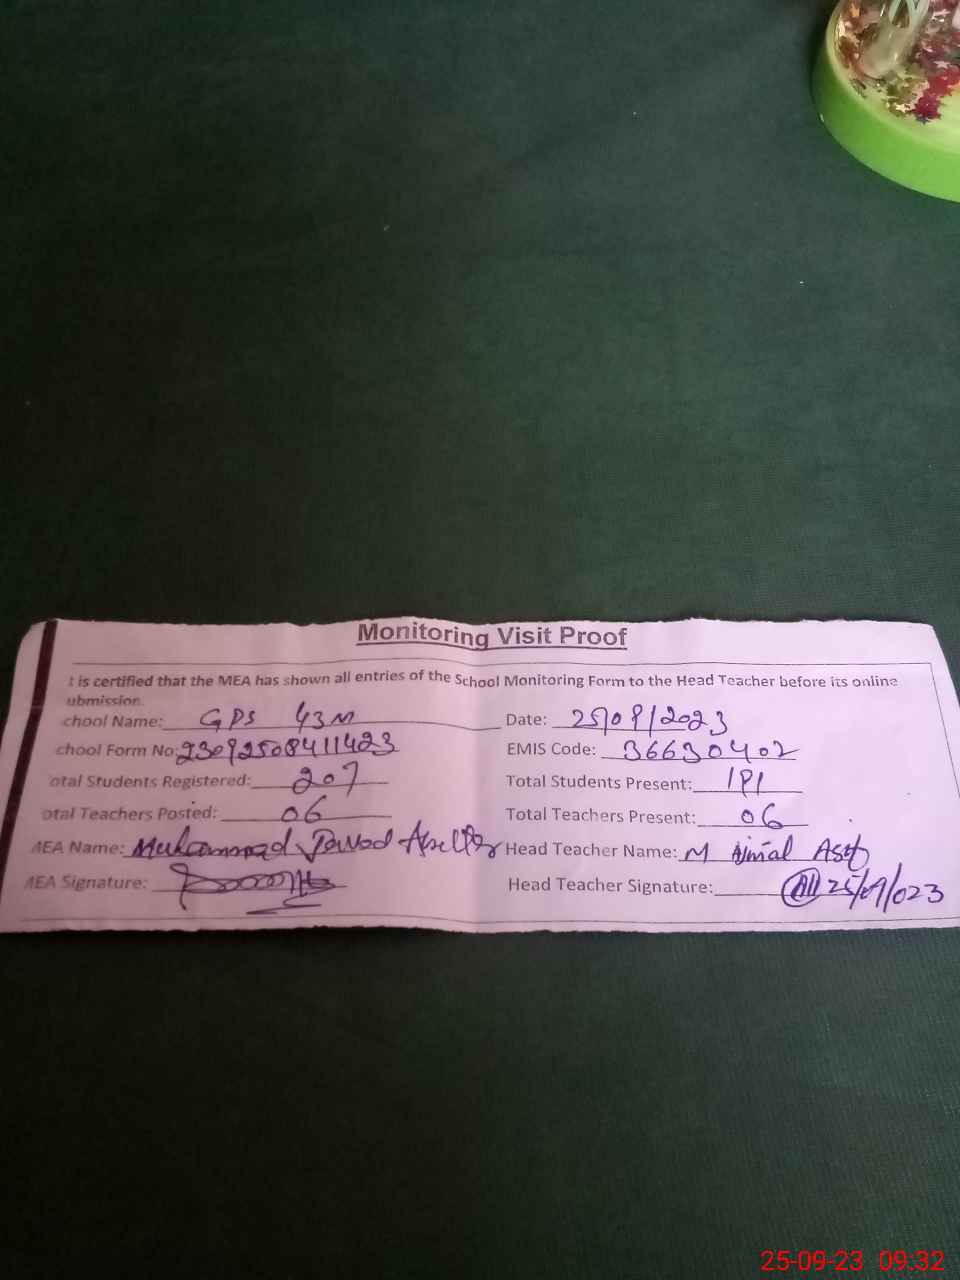 Monitoring Visit Proof
t is certified that the MEA has shown all entries of the School Monitoring Form to the Head Teacher before its online
ubmission.
chool Name: GPS 43M Date: 25/09/2023
chool Form No: 23092508411423 EMIS Code: 36630402
otal Students Registered: 207 Total Students Present: 191
otal Teachers Posted: 06 Total Teachers Present: 06
MEA Name: Muhammad Jawad Head Teacher Name: M Ajmal Asif
MEA Signature: Head Teacher Signature: 25/09/023
25-09-23 09:32